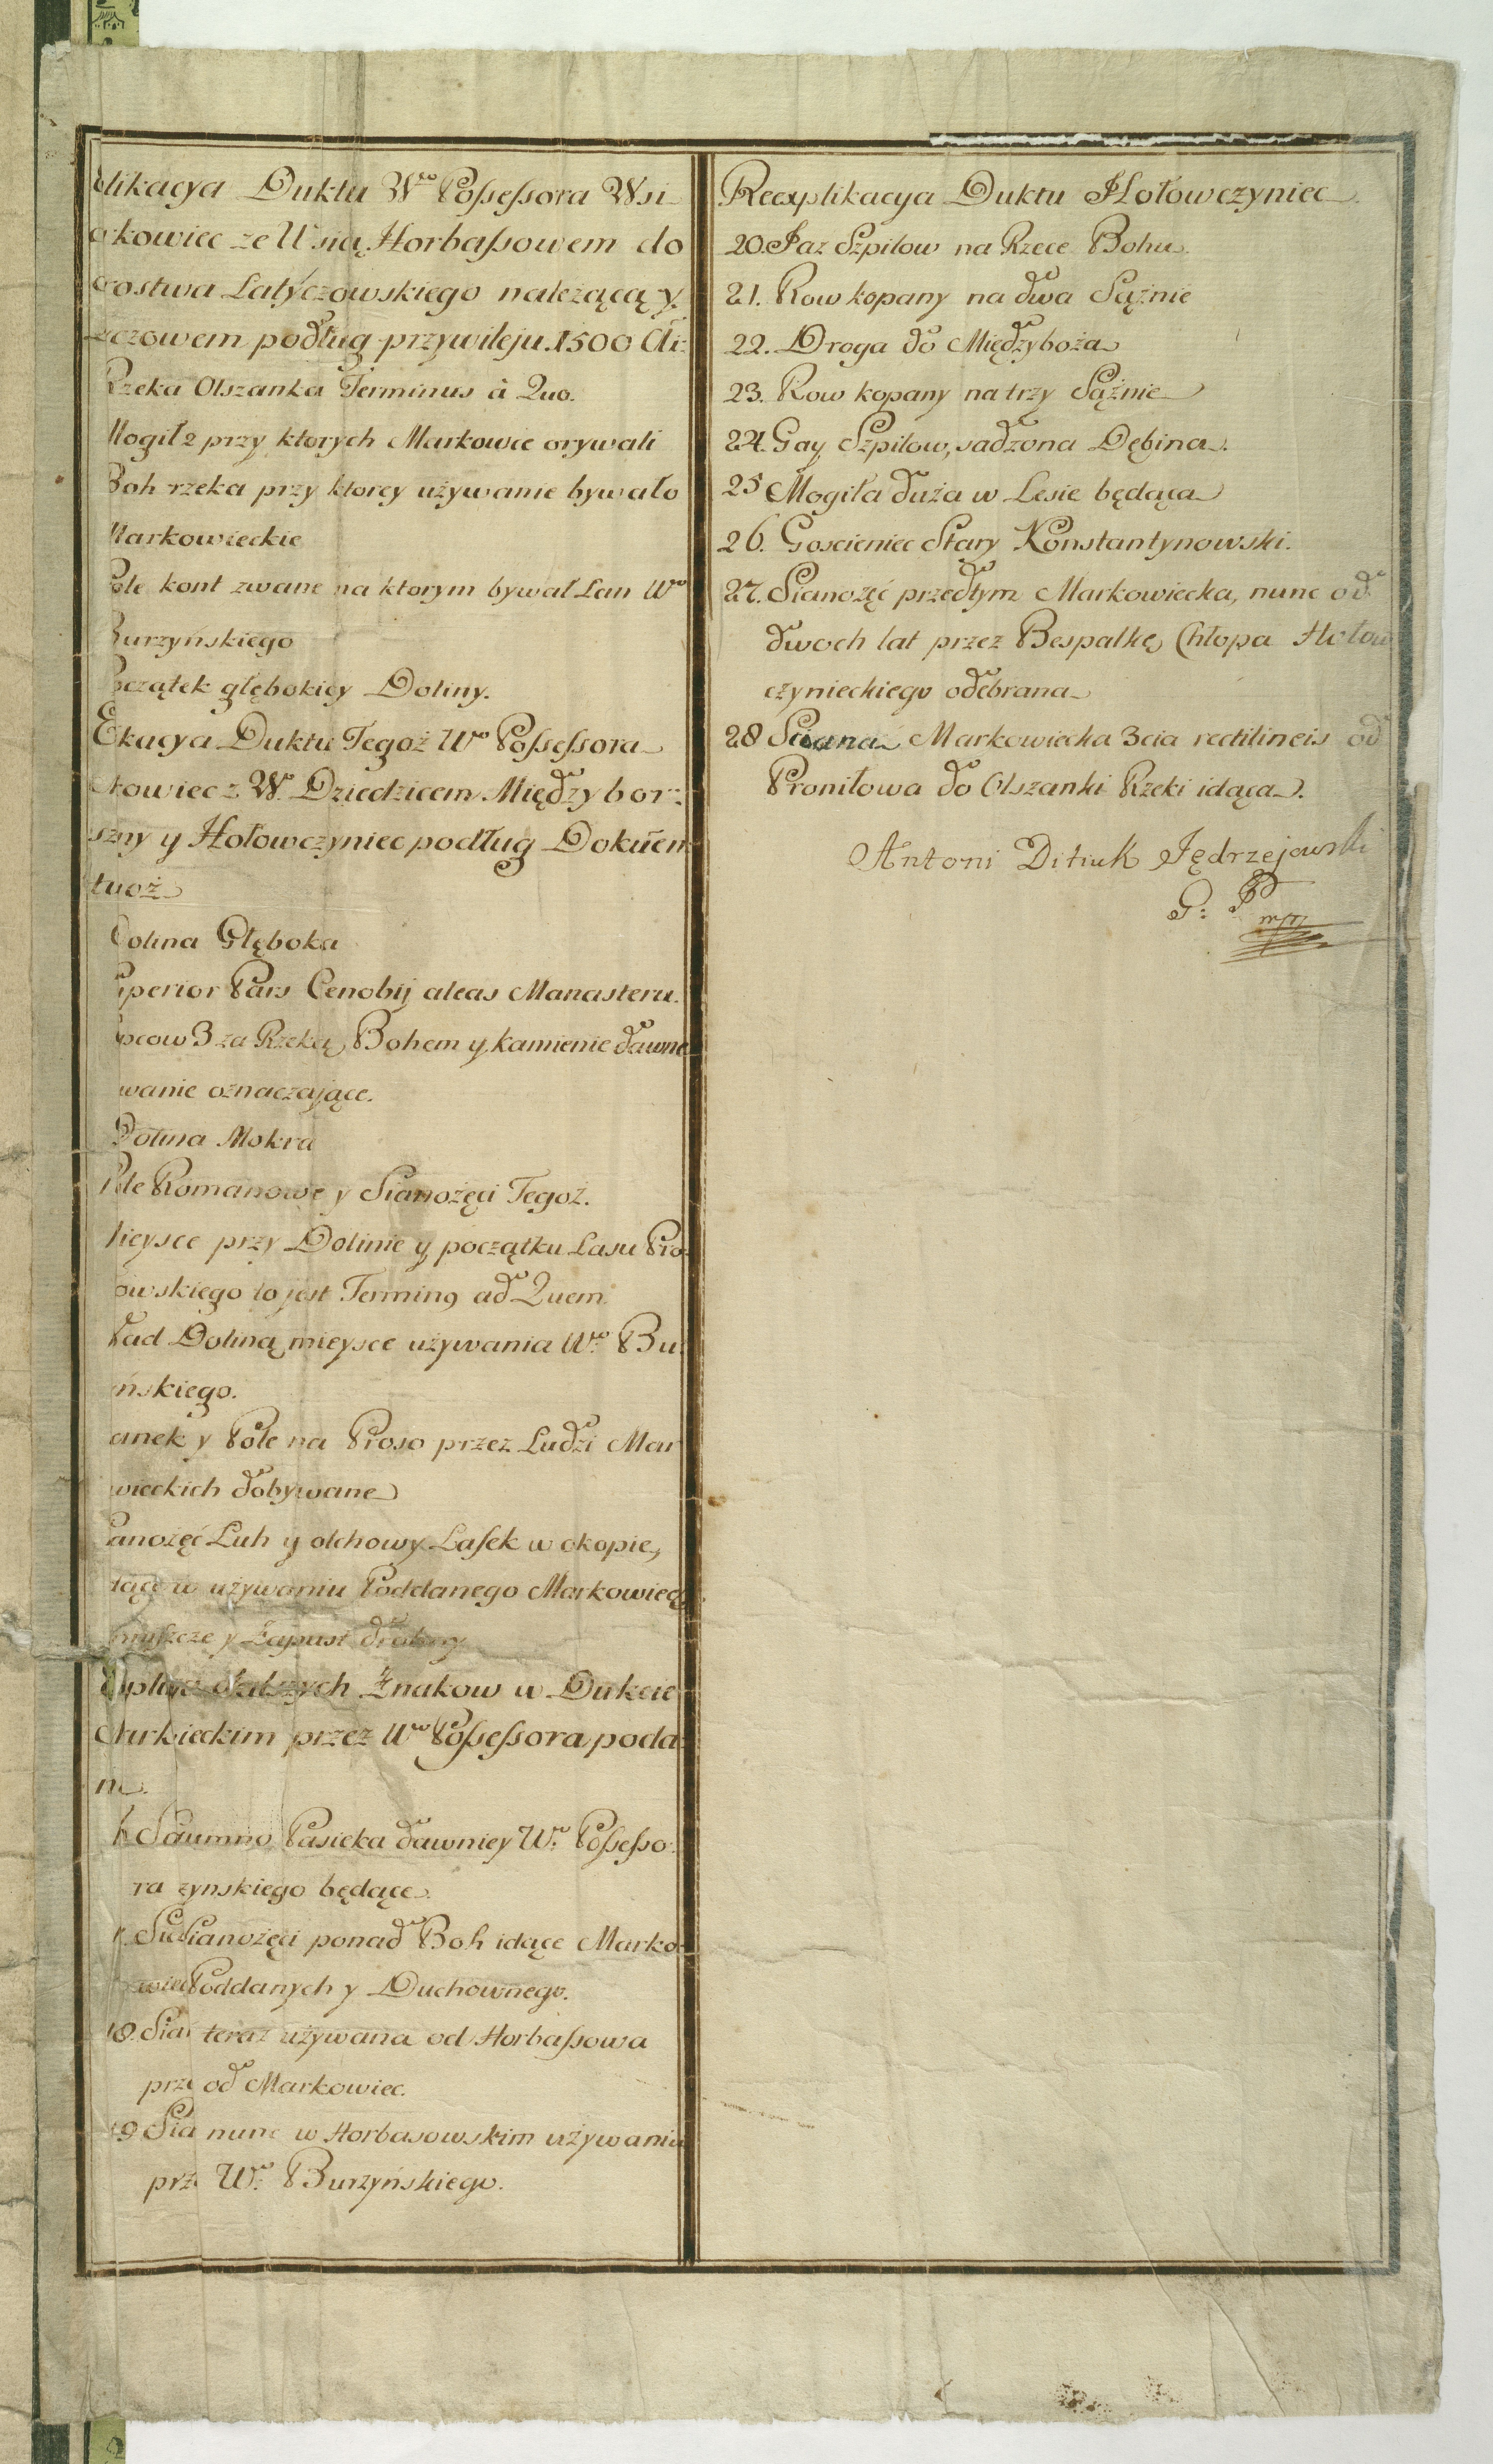 likacya Duktu Wgo Possessora Wsi
kowiec ze Wsią Horbassowem do
rostwa Latyczowskiego należącą y
czowem podług przywileju 1500 Ai:
Rzeka Olszanka Terminus à Quo.
Mogił 2 przy ktorych Markowie orywali
Boh rzeka przy ktorey używanie bywało
Markowieckie
Pole kont zwane na ktorym bywał Lan Wo
Burzyńskiego
Początek głębokiey Doliny.
kacya Duktu Tegoż Wo Possessora
kowiec z W. Dziedzicem Międzybor:
szny y Hołowczyniec podług Dokumen
tuoż
Dolina Głęboka
uperior Pars Cenobij aleas Manasteru.
pcow 3 za Rzeką Bohem y kamienie dawne
wanie oznaczające.
Dolina Mokra
Pole Romanowe y Sianożęci Tegoż.
Mieysce przy Dolinie y początku Lasu Pro
owskiego to jest Termin9 ad Quem.
Nad Doliną mieysce używania Wo Bu
ńskiego.
anek y Pole na Proso przez Ludzi Mar
wieckich dobywane
ianożęć Luh y olchowy Lasek w okopie,
dące w używaniu Poddanego Markowiec
y Zapust
dalszych Znakow w Dukcie
przez Wo Possessora poda
ne.
Pasieka dawniey Wo Possesso
ra zynskiego będące.
Sianożęci ponad Boh idące Marko
wiec Poddanych y Duchownego.
18. Sia teraz używana od Horbassowa
prze od Markowiec.
19 Sia nunc w Horbasowskim używaniu
prze Wo Burzyńskiego.
Reexplikacya Duktu Hołowczyniec
20. Jaz Szpilow na Rzece Bohu
21. Row kopany na dwa Sążnie
22. Droga do Międzyboża
23. Row kopany na trzy Sążnie
24. Gay Szpilow, sadzona Dębina.
25 Mogiła duża w Lesie będąca
26. Goscieniec Stary Konstantynowski.
27. Sianożęć przedtym Markowiecka, nunc od
dwoch lat przez Bespałkę Chłopa Hołow
czynieckiego odebrana
28 Sciana Markowiecka 3cia rectilineis od
Proniłowa do Olszanki Rzeki idąca.
Antoni Ditiuk Jędrzejowski
G: P
mp